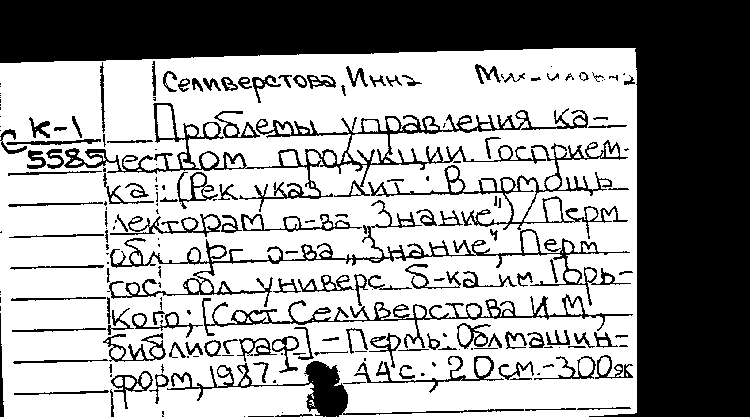 Селиверстова, Инна Михайловна
К-1
С 5585
Проблемы управления ка-
чеством продукции. Госприем-
ка: (Рек. указ. лит.: В помощь
лекторам о-ва „Знание") / Перм.
обл. орг. о-ва „Знание", Перм.
гос. обл. универс. б-ка им. Горь-
кого; [Сост. Селиверстова И.М.,
библиограф]. - Пермь: Облмашин-
форм, 1987. - 44 с.; 20 см. - 300 эк